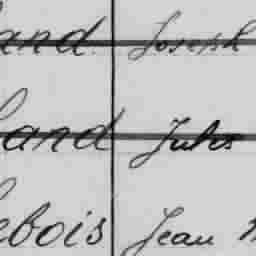 and Joseph
and Jules
ebois Jean